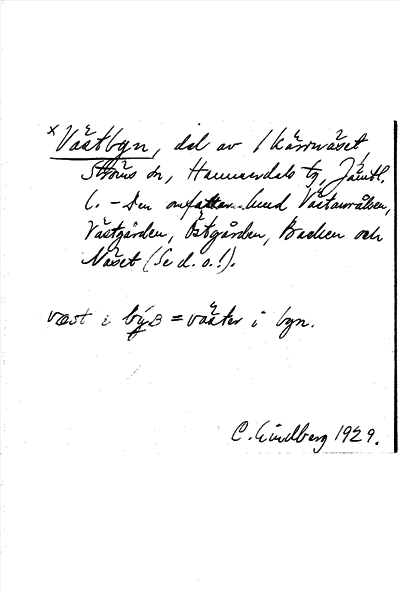 x Västbyn, del av / Kärrnäset,
Ströms sn, Hammerdals tg, Jämtl.
l. - Den omfattar
Västgården, Östgården, Backen och
Näset (Se d. o.!).
väst i = väster i byn.
C. Lindberg 1929.